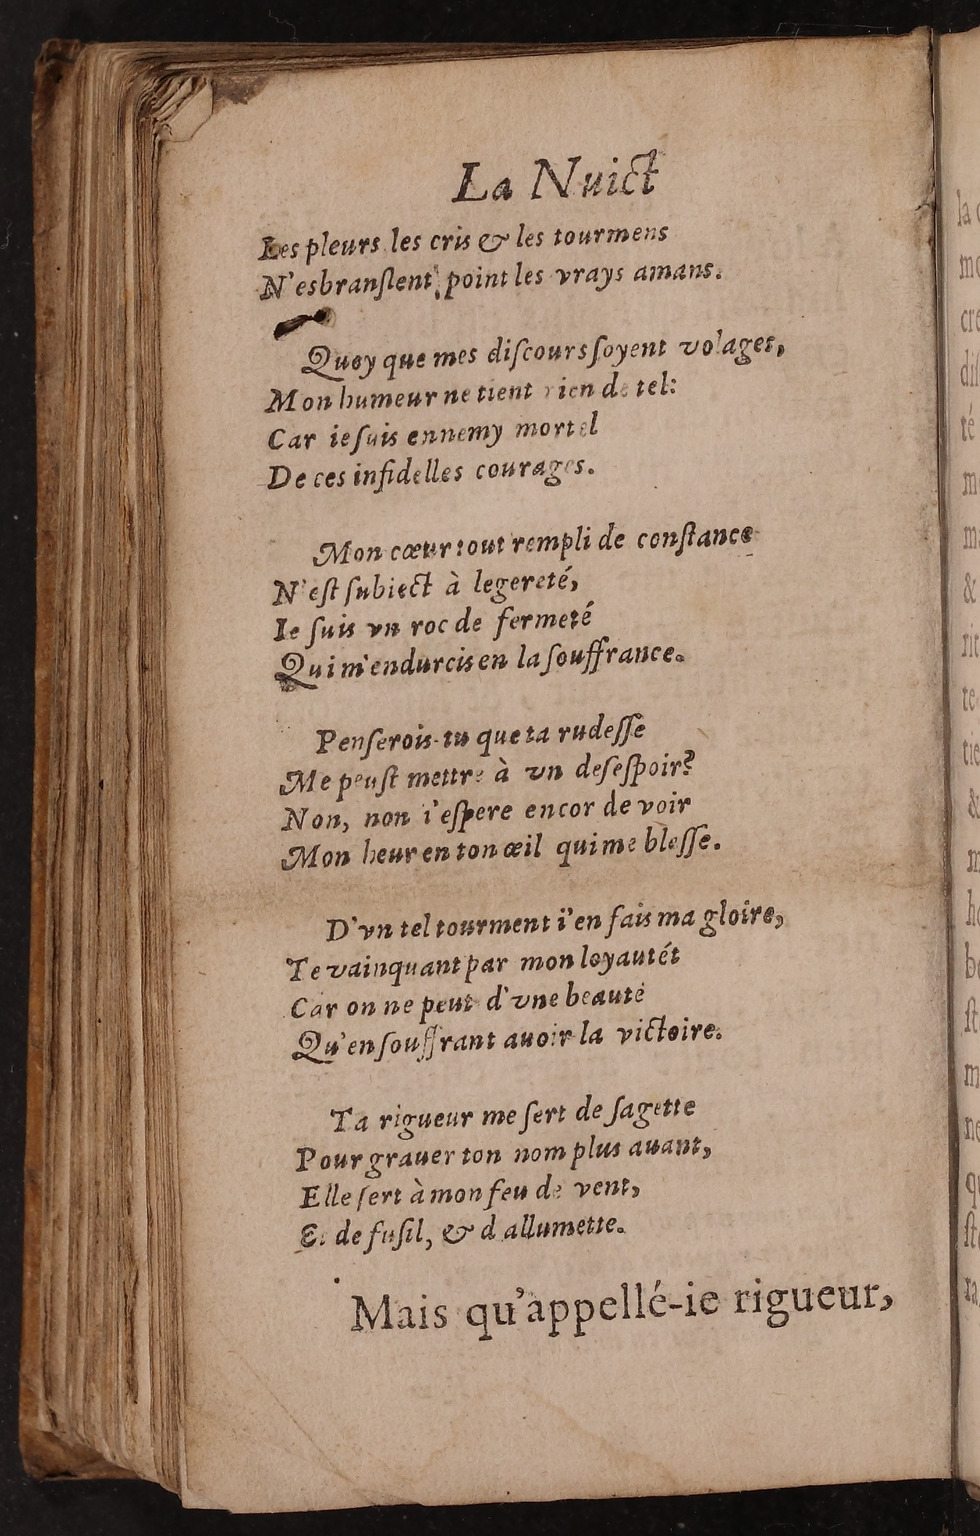 La Nuict
Les pleurs les cris & les tourmens
N'esbranſlent point les vrays amans.
Quoy que mes diſcours ſoyent volages,
Mon humeur ne tient rien de tel:
Car ie ſuis ennemy mortel
De ces infidelles courages.
Mon cœur tout rempli de conſtance
N'eſt ſubiect à legereté,
Ie ſuis vn roc de fermeté
Qui m'endurcis en la ſouffrance.
Penſerois-tu que ta rudeſſe
Me peuſt mettre à vn deſeſpoir?
Non, non i'eſpere encor de voir
Mon heur en ton œil qui me bleſſe.
D'vn tel tourment i'en fais ma gloire,
Te vainquant par mon loyautét
Car on ne peut d'vne beauté
Qu'en ſouffrant auoir la victoire.
Ta rigueur me ſert de ſagette
Pour grauer ton nom plus auant,
Elle ſert à mon feu de vent,
Et de fuſil, & d allumette.
Mais qu'appellé-ie rigueur,